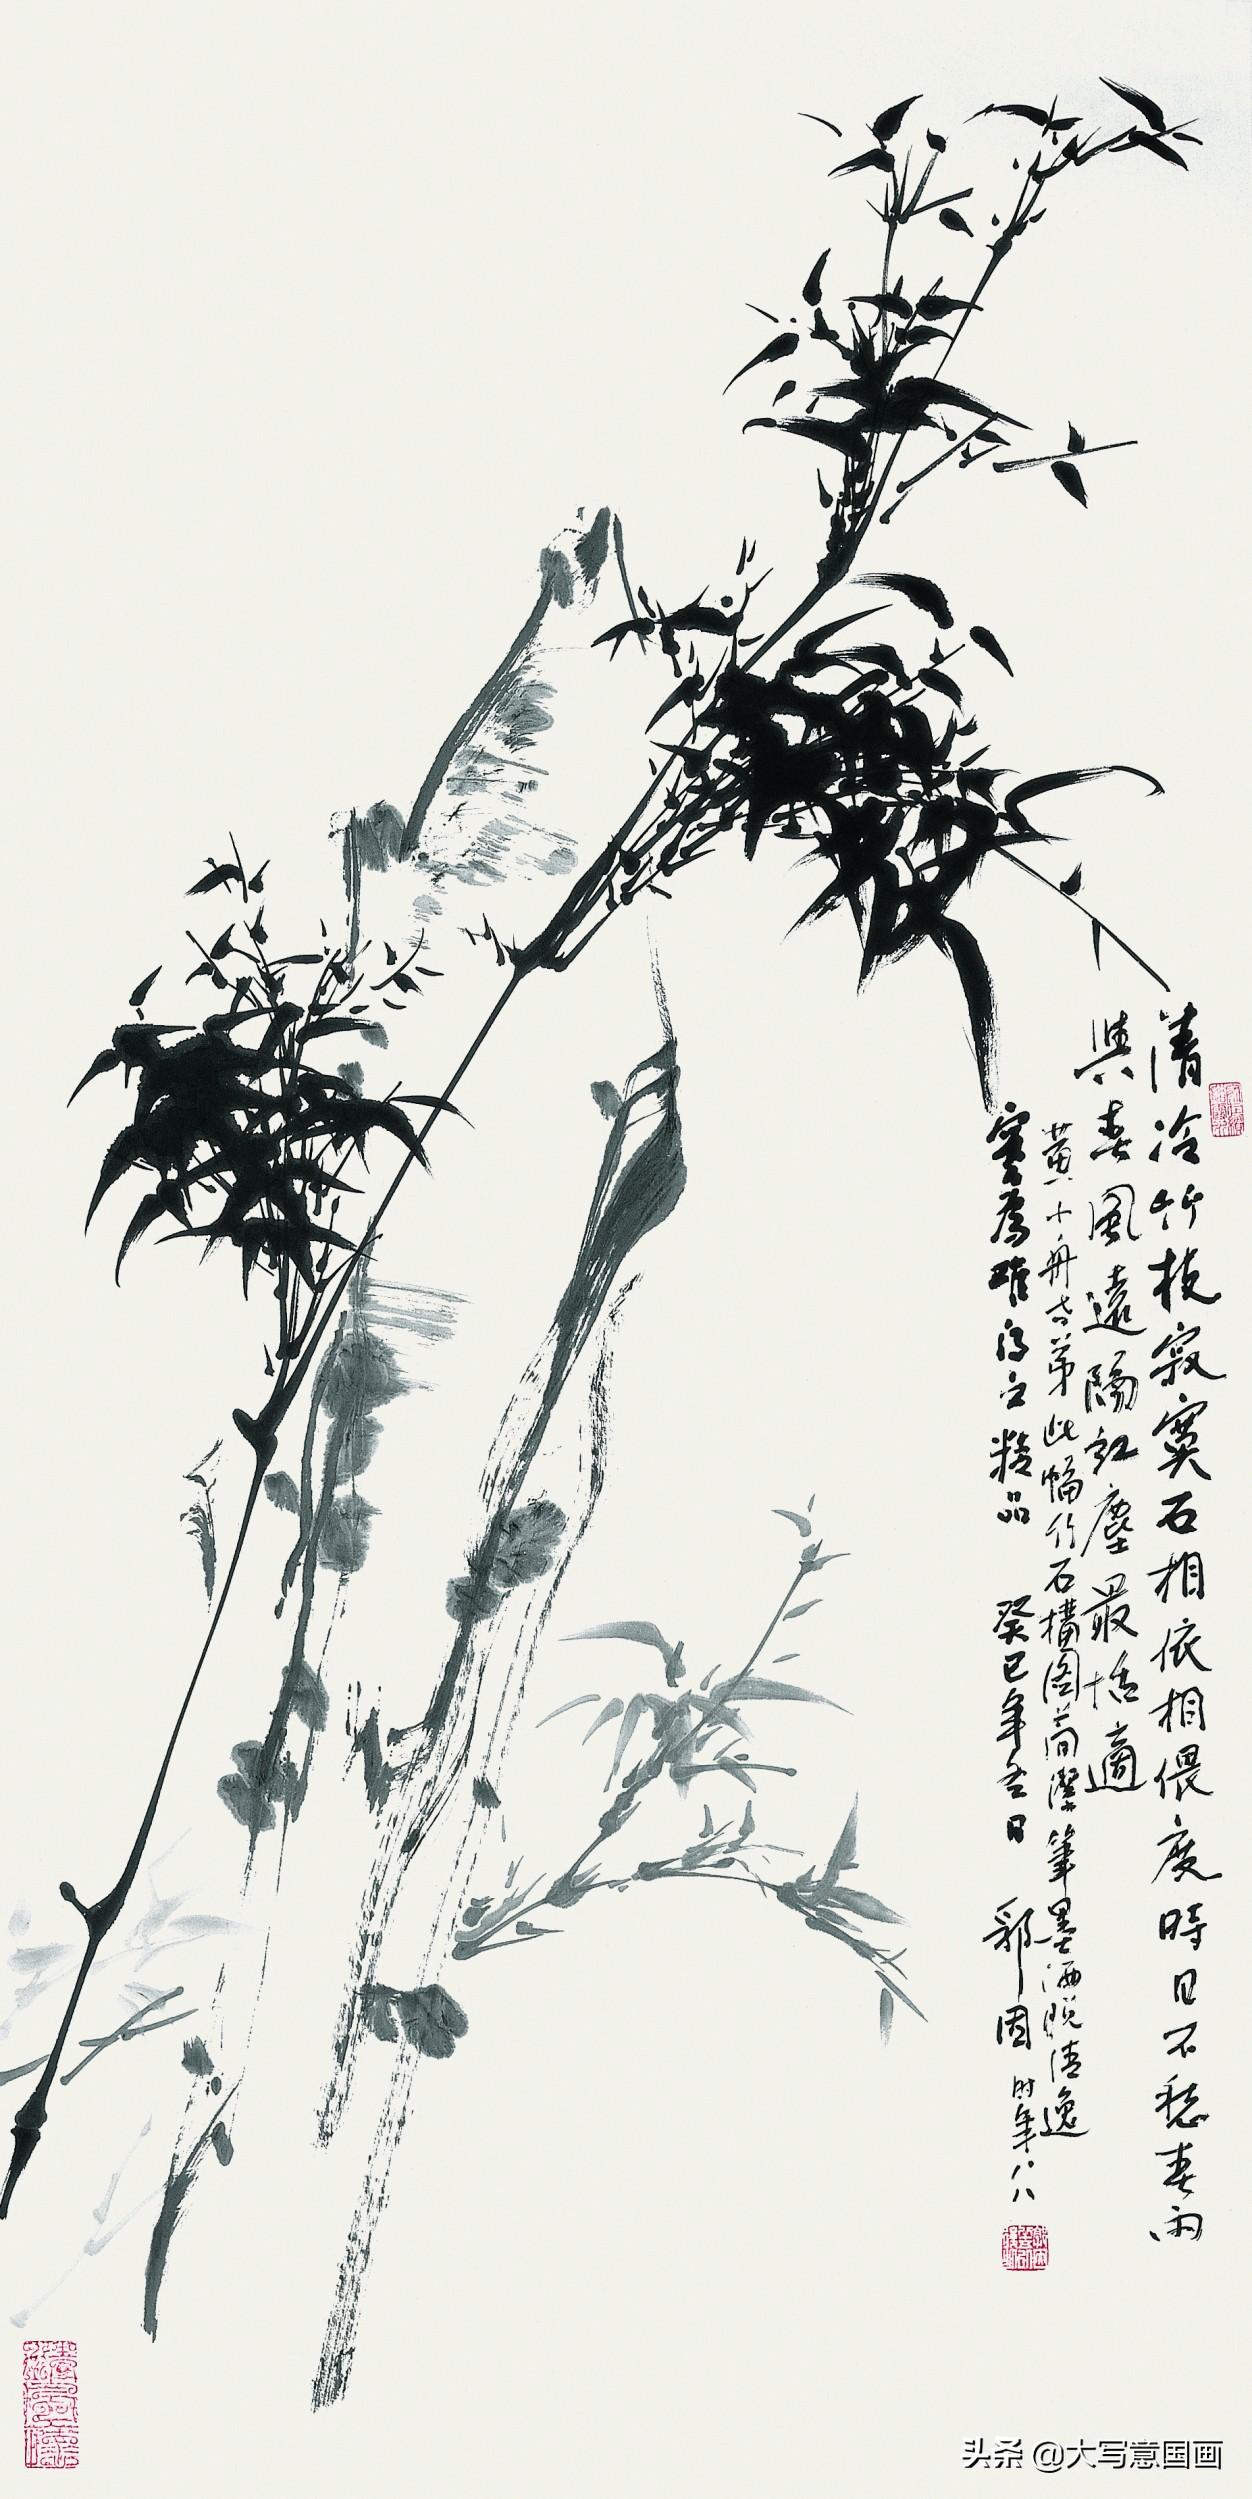 清冷竹枝寂寞石相依相偎度時日不愁春雨
與春風遠隔紅塵最恬適
黄舟老弟此幅竹石構图简潔筆墨洒脱清逸
實為难得之精品 癸巳年吉日 郭因 时年八八
头条 @大写意国画